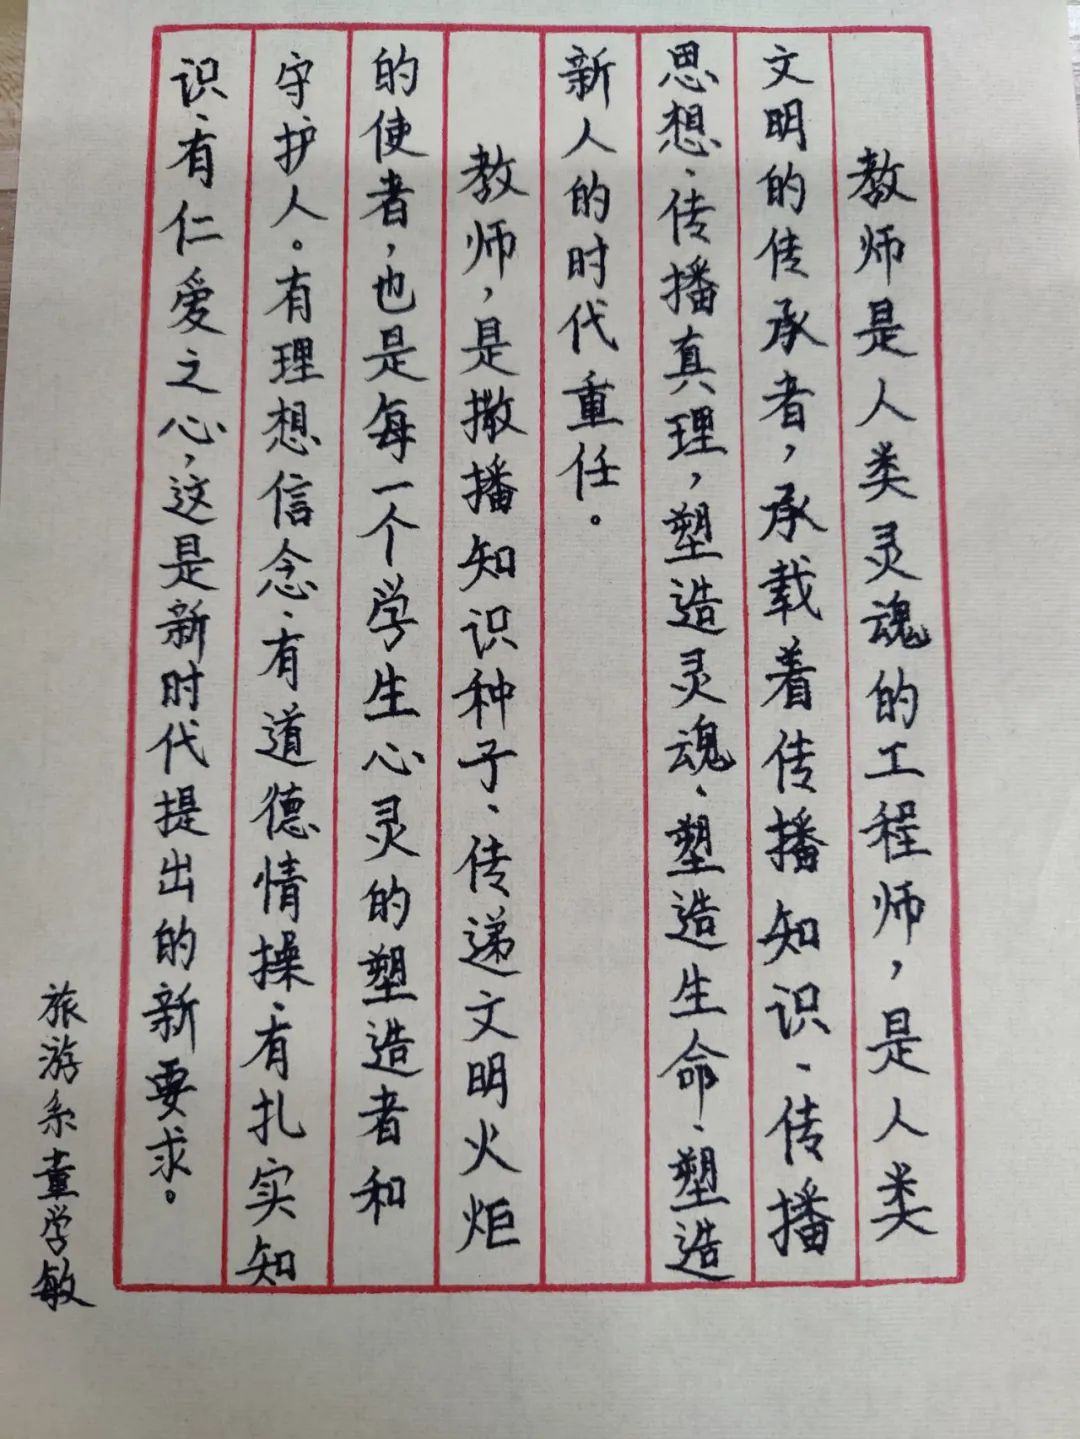 教师是人类灵魂的工程师，是人类
文明的传承者，承载着传播知识、传播
思想、传播真理，塑造灵魂、塑造生命、塑造
新人的时代重任。
教师，是撒播知识种子、传递文明火炬
的使者，也是每一个学生心灵的塑造者和
守护人。有理想信念、有道德情操、有扎实知
识、有仁爱之心，这是新时代提出的新要求。
旅游系董学敏